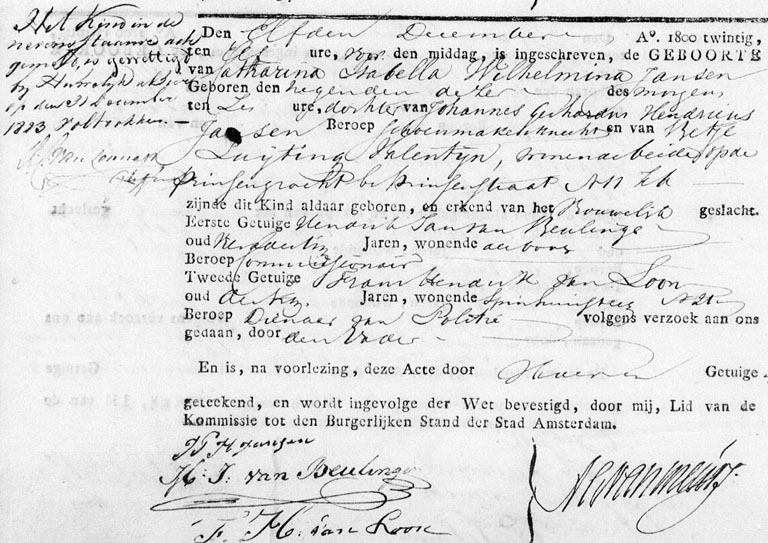 Het Kind in de
nevenstaande acte
gemeld, is gewettigd
by Huwelyk
op den 31 December
1823 voltrokken.
Den Elfden December A°. 1800 twintig,
ten ure, voor den middag, is ingeschreven, de GEBOORTE
van Catharina Isabella Wilhelmina Jansen
Geboren den negenden dezer des morgens
ten Zes ure, dochter van Johannes Gerhardus Hendricus
Jansen Beroep Schoenmakersknecht en van Betje
Luijting Valentyn, zonder arbeid op de
Prinsengracht by Prinsenstraat N 11
zijnde dit Kind aldaar geboren, en erkend van het Vrouwelijk geslacht.
Eerste Getuige Hendrik Jan van Beulingen
oud Jaren, wonende
Beroep Commissionair
Tweede Getuige Frans Hendrik van Loon
oud Jaren, wonende
Beroep Dienaar van Politie volgens verzoek aan ons
gedaan, door den Vader
En is, na voorlezing, deze Acte door Getuige
geteekend, en wordt ingevolge der Wet bevestigd, door mij, Lid van de
Kommissie tot den Burgerlijken Stand der Stad Amsterdam.
H. J. van Beulingen
F. H. van Loon